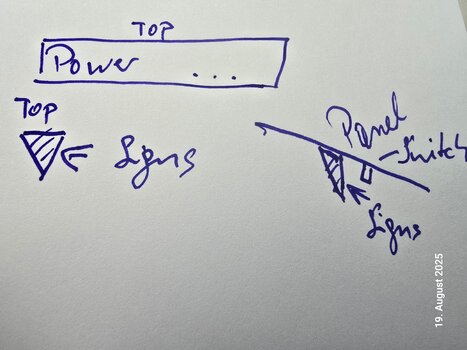 TOP
Power ...
TOP
Signs
Panel
Switch
Signs
19. August 2025